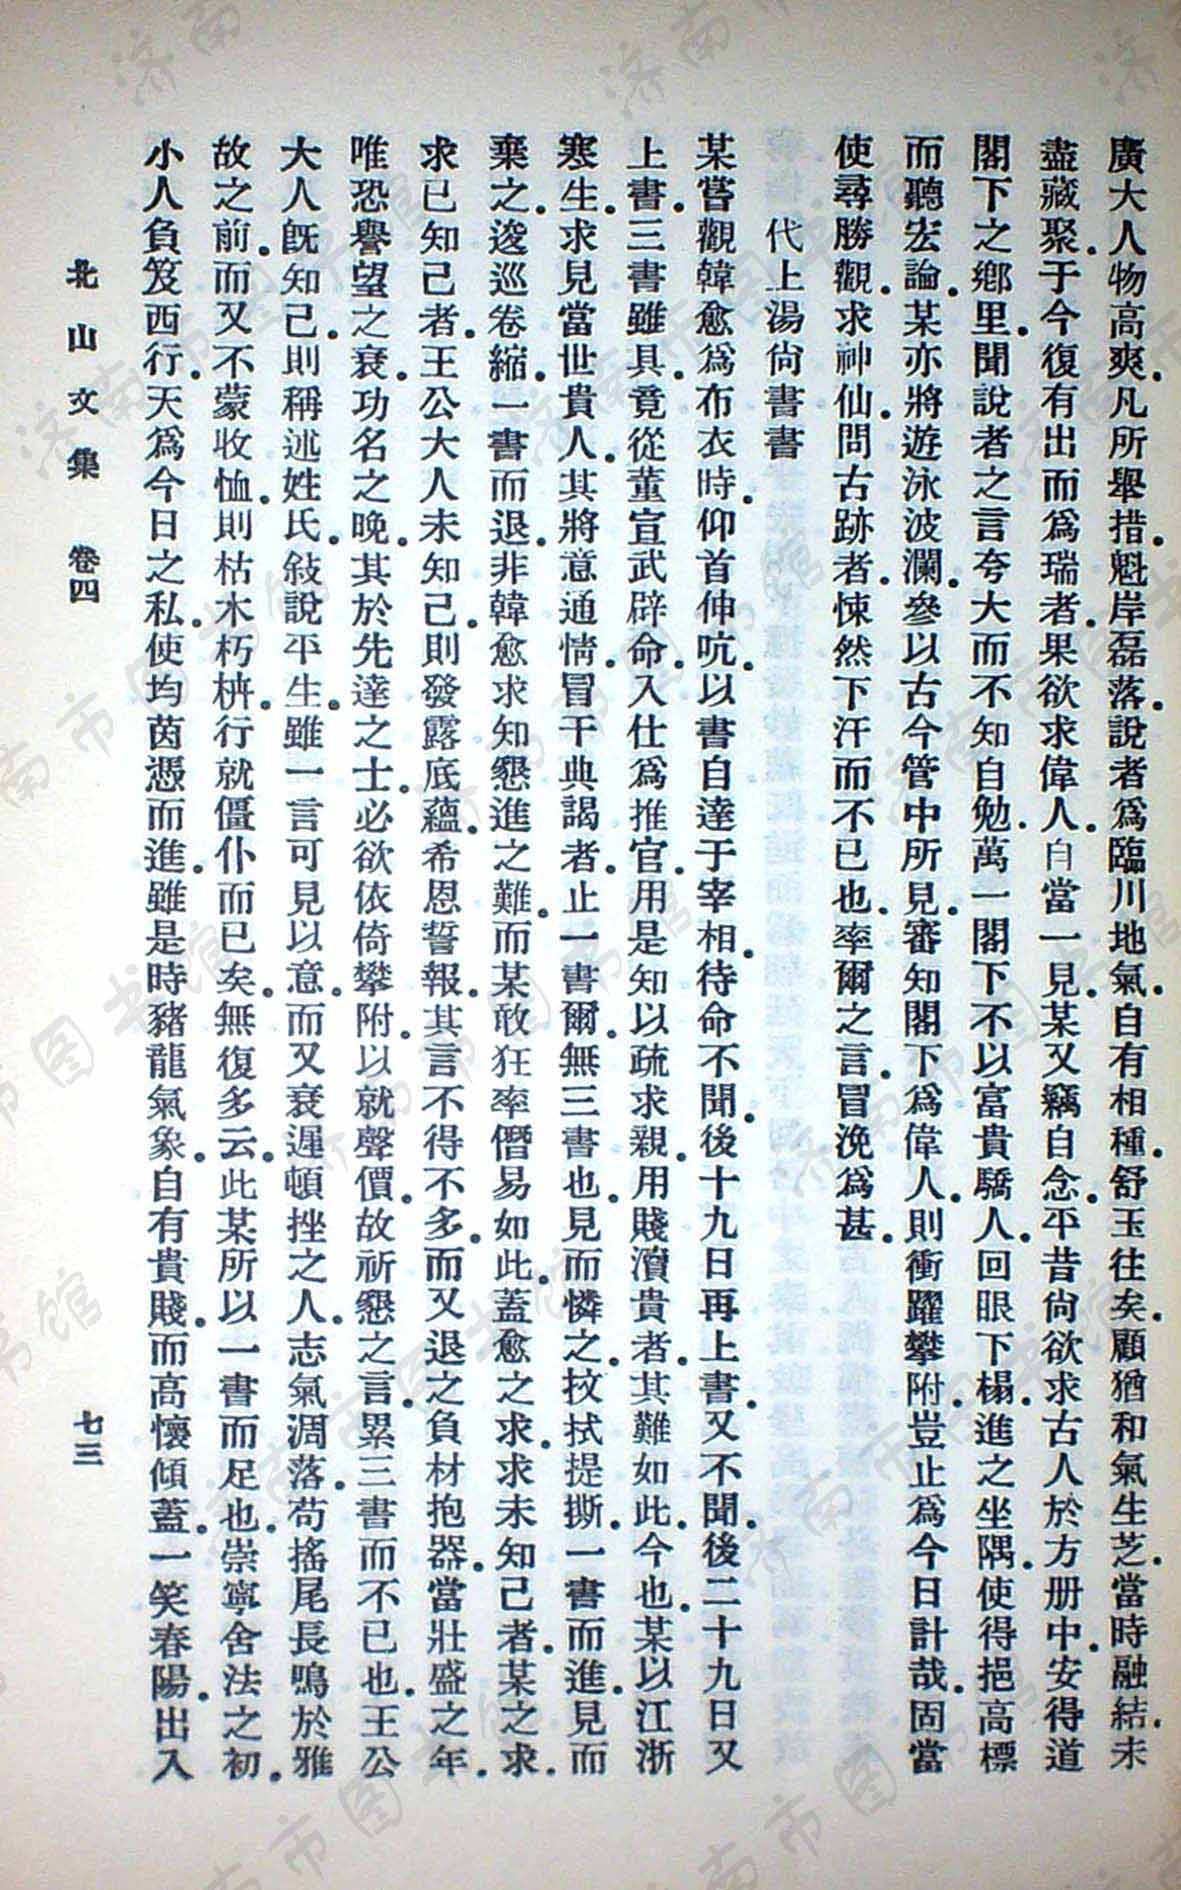 廣大人物高爽.凡所舉措.魁岸磊落.說者爲臨川地氣.自有相種.舒玉往矣.顧猶和氣生芝.當時融結.未
盡藏聚.于今復有出而爲瑞者.果欲求偉人.自當一見.某又竊自念.平昔尙欲求古人於方册中.安得道
閣下之鄉里.聞說者之言夸大而不知自勉.萬一閣下不以富貴驕人.回眼下榻.進之坐隅.使得挹高標
而聽宏論.某亦將遊泳波瀾.參以古今管中所見.審知閣下爲偉人.則衝躍攀附.豈止爲今日計哉.固當
使尋勝觀.求神仙.問古跡者.悚然下汗而不已也.率爾之言.冒浼爲甚.
代上湯尙書書
某嘗觀韓愈爲布衣時.仰首伸吭.以書自達于宰相.待命不聞.後十九日再上書.又不聞.後二十九日又
上書.三書雖具.竟從董宣武辟命.入仕爲推官.用是知以疏求親.用賤瀆貴者.其難如此.今也.某以江浙
寒生.求見當世貴人.其將意通情.冒干典謁者.止一書爾.無三書也.見而憐之.抆拭提撕.一書而進.見而
棄之.逡巡卷縮.一書而退.非韓愈求知懇進之難.而某敢狂率僭易如此.蓋愈之求.求未知己者.某之求.
求已知己者.王公大人未知己.則發露底蘊.希恩誓報.其言不得不多.而又退之負材抱器.當壯盛之年.
唯恐譽望之衰.功名之晚.其於先達之士.必欲依倚攀附.以就聲價.故祈懇之言.累三書而不已也.王公
大人旣知己.則稱述姓氏.敍說平生.雖一言可見以意.而又衰遲頓挫之人.志氣凋落.苟搖尾長鳴於雅
故之前.而又不蒙收恤.則枯木朽枿.行就僵仆而已矣.無復多云.此某所以一書而足也.崇寧舍法之初.
小人負笈西行.天爲今日之私.使均茵憑而進.雖是時豬龍氣象.自有貴賤.而高懷傾蓋.一笑春陽.出入
北山文集 卷四 七三
济南市图书馆